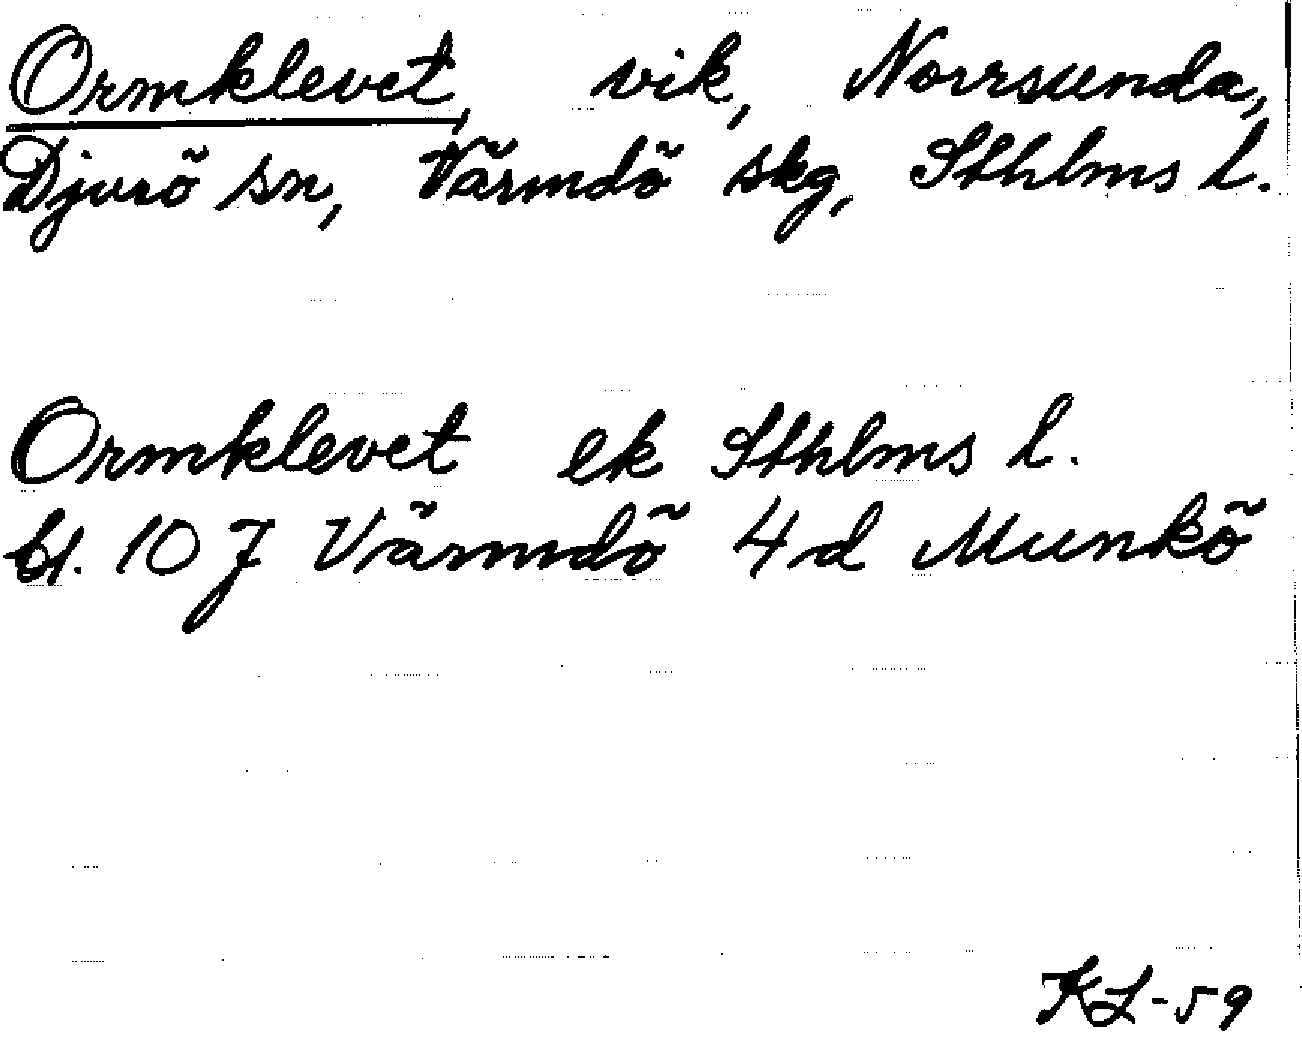 Ormklevet, vik, Norrsunda,
Djurö sn, Värmdö skg, Sthlms l.
Ormklevet ek Sthlms l.
bl. 107 Värmdö 4d Munkö
KL-59